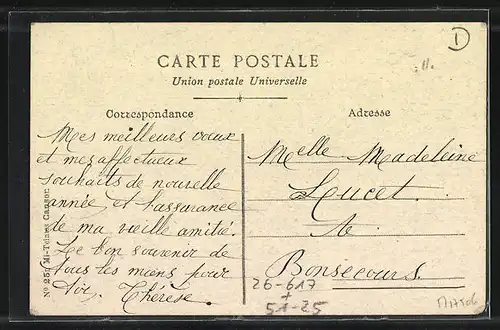 D
CARTE POSTALE
Union postale Universelle
Correspondance
Mes meilleurs vœux
et mes affectueux
souhaits de nouvelle
année, et l'assurance
de ma vieille amitié.
Le bon souvenir de
tous les miens pour
toi. Thérèse.
Adresse
Melle Madeleine
Loucet
Bonsecours.
26-617
+
51-25
Mi-Teintes Canson